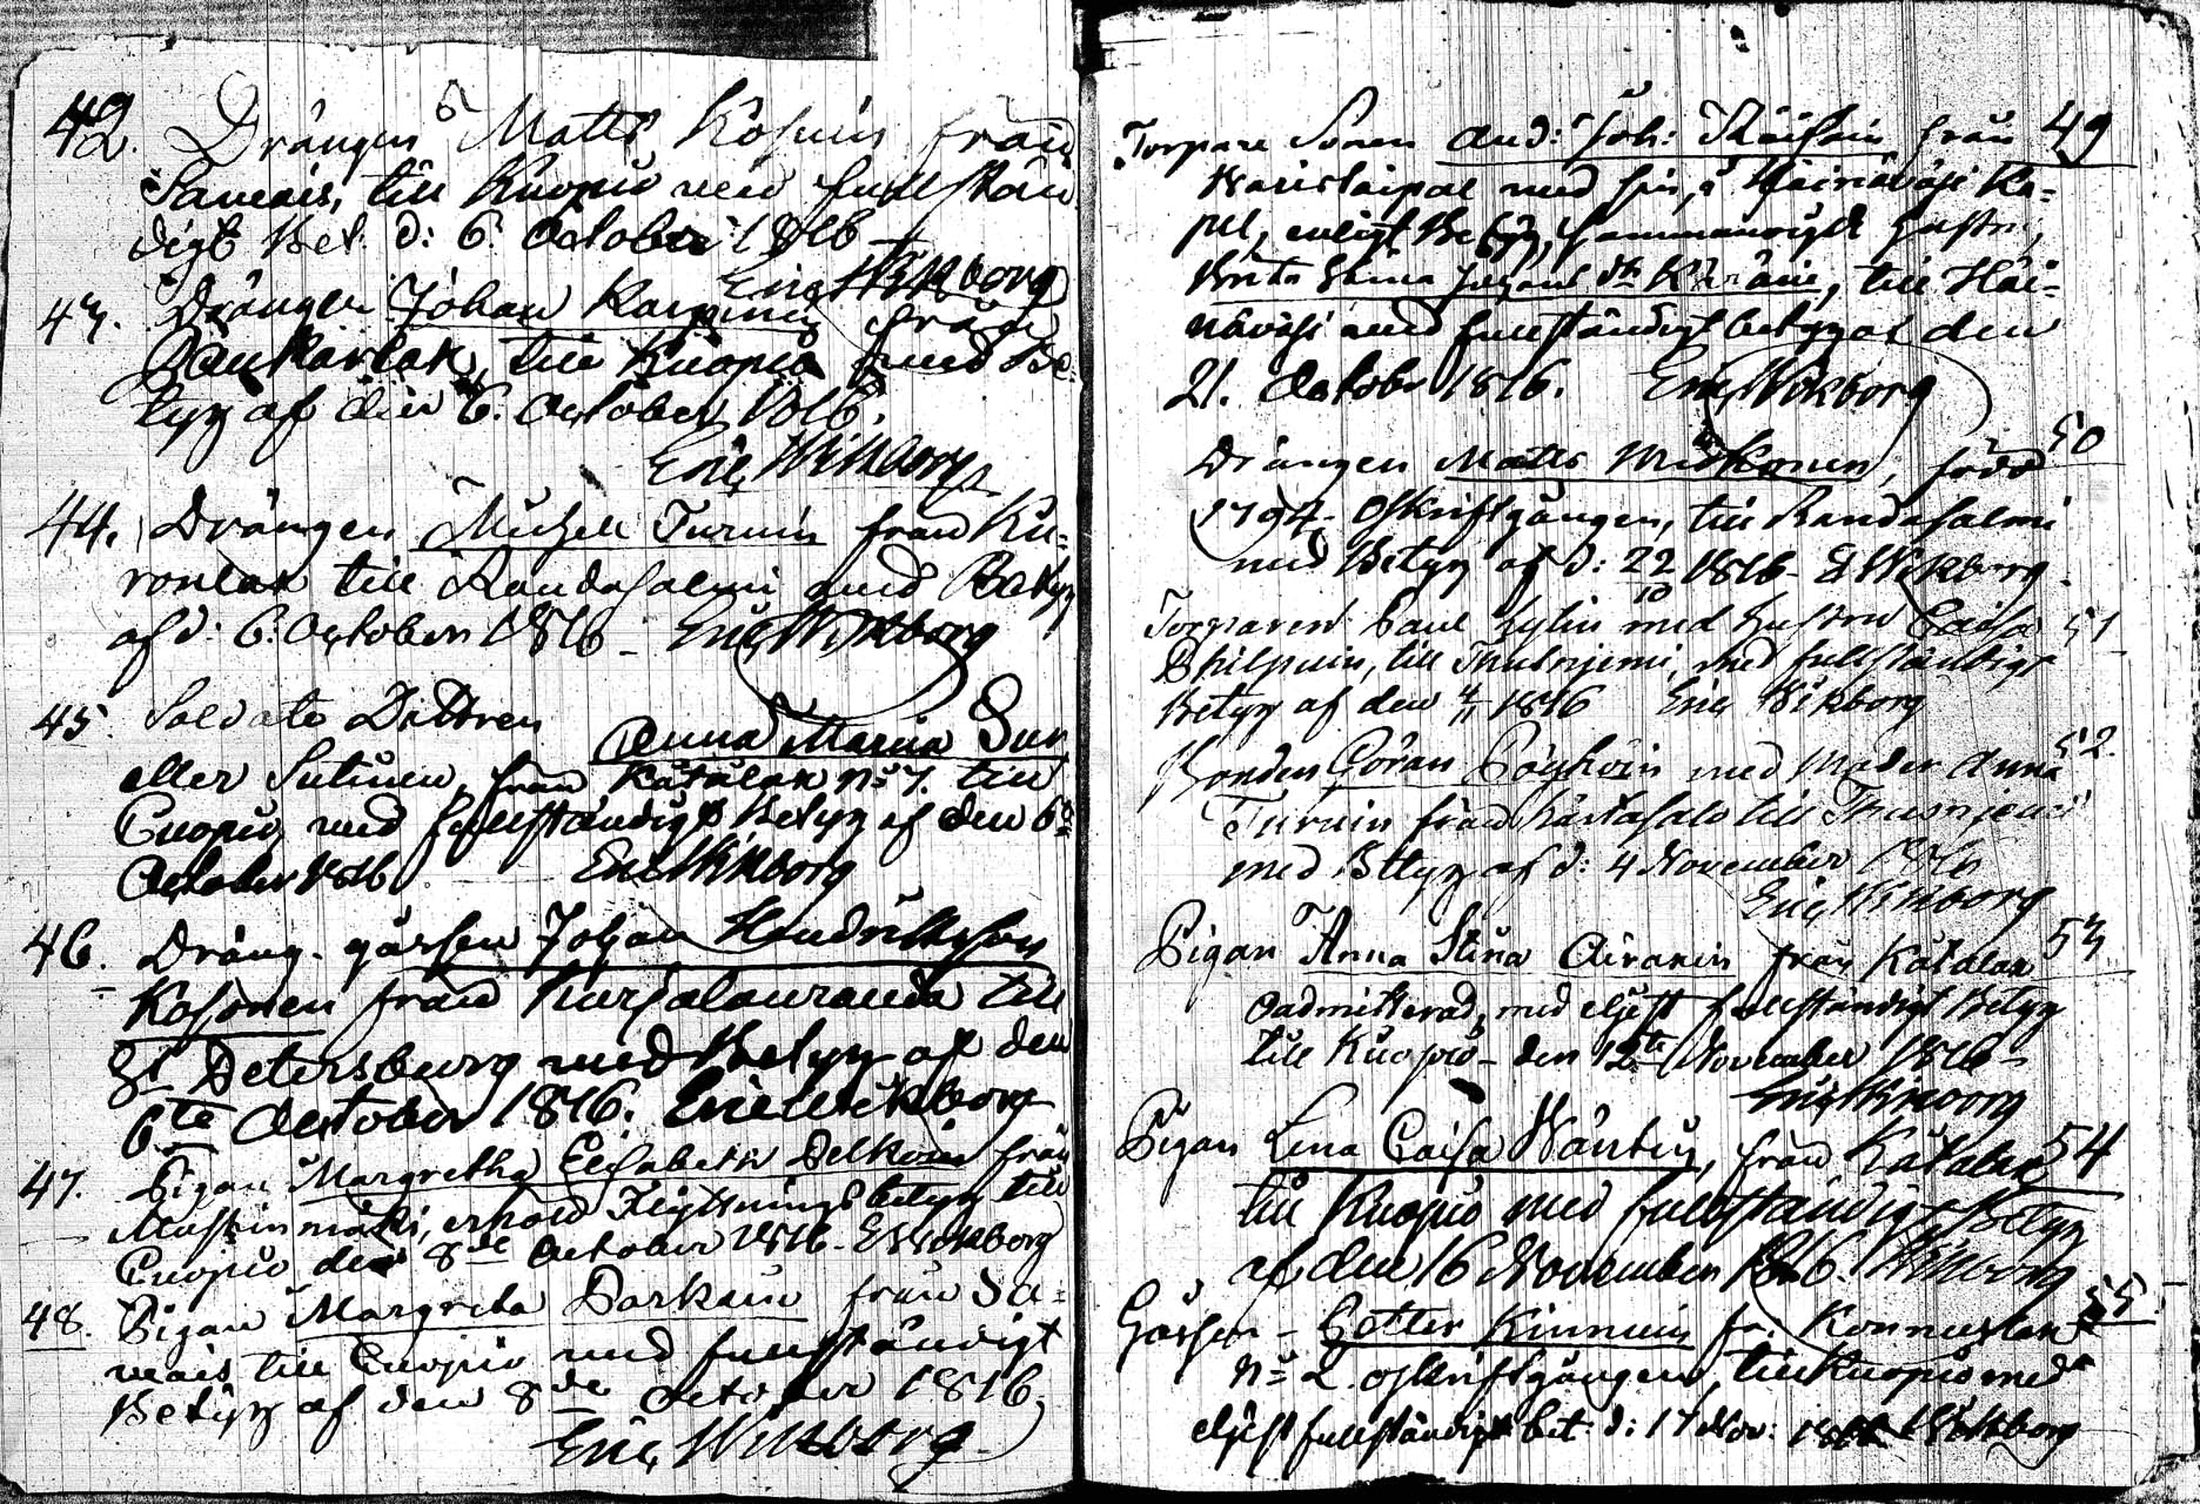 42. Drängen Matts Kosuin från
Samais, till Kuopio med fullstän
digt Bet. d: 6. October 1816
Eric Wikborg
43. Drängen Johan Karpinen från
till Kuopio med Be-
tyg af den 6. October 1816.
Eric Wikborg
44. Drängen Michell Turuin från Ku-
ronlax till Randasalmi med Betyg
af d: 6. October 1816 - Eric Wikborg
45. Soldate Dottren
Anna Maria Sur
eller Sutinen, från Kätälax No 7. till
Cuopio med fullständigt Betyg af den 6te
October 1816 Eric Wikborg
46. Dräng-gossen Johan Hendrichsson
Kosonen från Kurjalanranda till
St Petersburg med Betyg af den
6te October 1816. Eric Wikborg
47. Pigan Margretha Elisabeth Pelkoin från
Mustinmäki, erhöld Flyttningsbetyg till
Cuopio den 8de October 1816. E Wikborg
48. Pigan Margreta Parkuin från Sa-
mais till Cuopio med fullständigt
Betyg af den 8de October 1816.
Eric Wikborg
Torpare Sonen And: Joh: Räisäin från 49
Warislaipal med sin, i Häinäväsi Ka-
pel, enligt Betyg, sammanvigde hustru,
Brita Stina till Häi-
näväsi med fullständigt betyg af den
21. October 1816. Eric Wikborg
Drängen Matts Miskonen, född 50
1794. Oskriftgången, till Randasalmi
med Betyg af d: 22/10 1816 - E Wikborg.
Torparen Paul hylin med hustru Caisa 51
Philpuin, till Thusnjemi, med fullständigt
Betyg af den 4/11 1816 Eric Wikborg
Bonden Göran Pöyhöin med Moder Anna 52.
Turuin från Kärtasalo till Thusnjemi
med Betyg af d: 4 November 1816
Eric Wikborg
Pigan Anna Stina Airaxin från Kätälax 53
oadmitterad, med eljest fullständigt Betyg
till Kuopio - den 12te November 1816 -
Eric Wikborg
Pigan Lena Caisa Wäntin, från Kätälax 54
till Kuopio med fullständigt Betyg
af den 16 November 1816. Wikborg
Gossen - Petter Kinnuin fr. Konnuslax 55
No 2. oskriftgången, till Kuopio med
eljest fullständigt bet: d: 17 Nov: 1816 E Wikborg